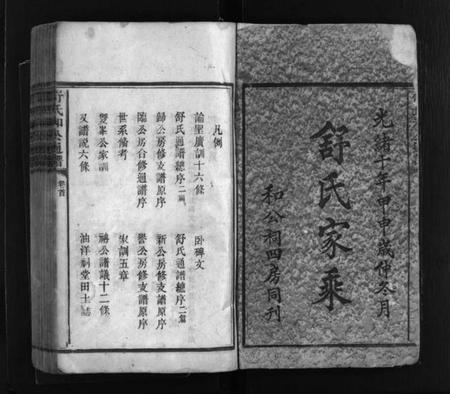 光緒十年甲申歲仲冬月
舒氏家乘
和公祠四房同刊
凡例
諭聖廣訓十六條
卧碑文
舒氏通譜總序二篇
舒氏通譜總序二篇
歸公房修支譜原序
新公房修支譜原序
臨公房合修通譜序
譽公房修支譜原序
世系備考
家訓五章
雙峯公家訓
公譜議十二條
又譜說六條
油洋祠堂田土誌
卷首